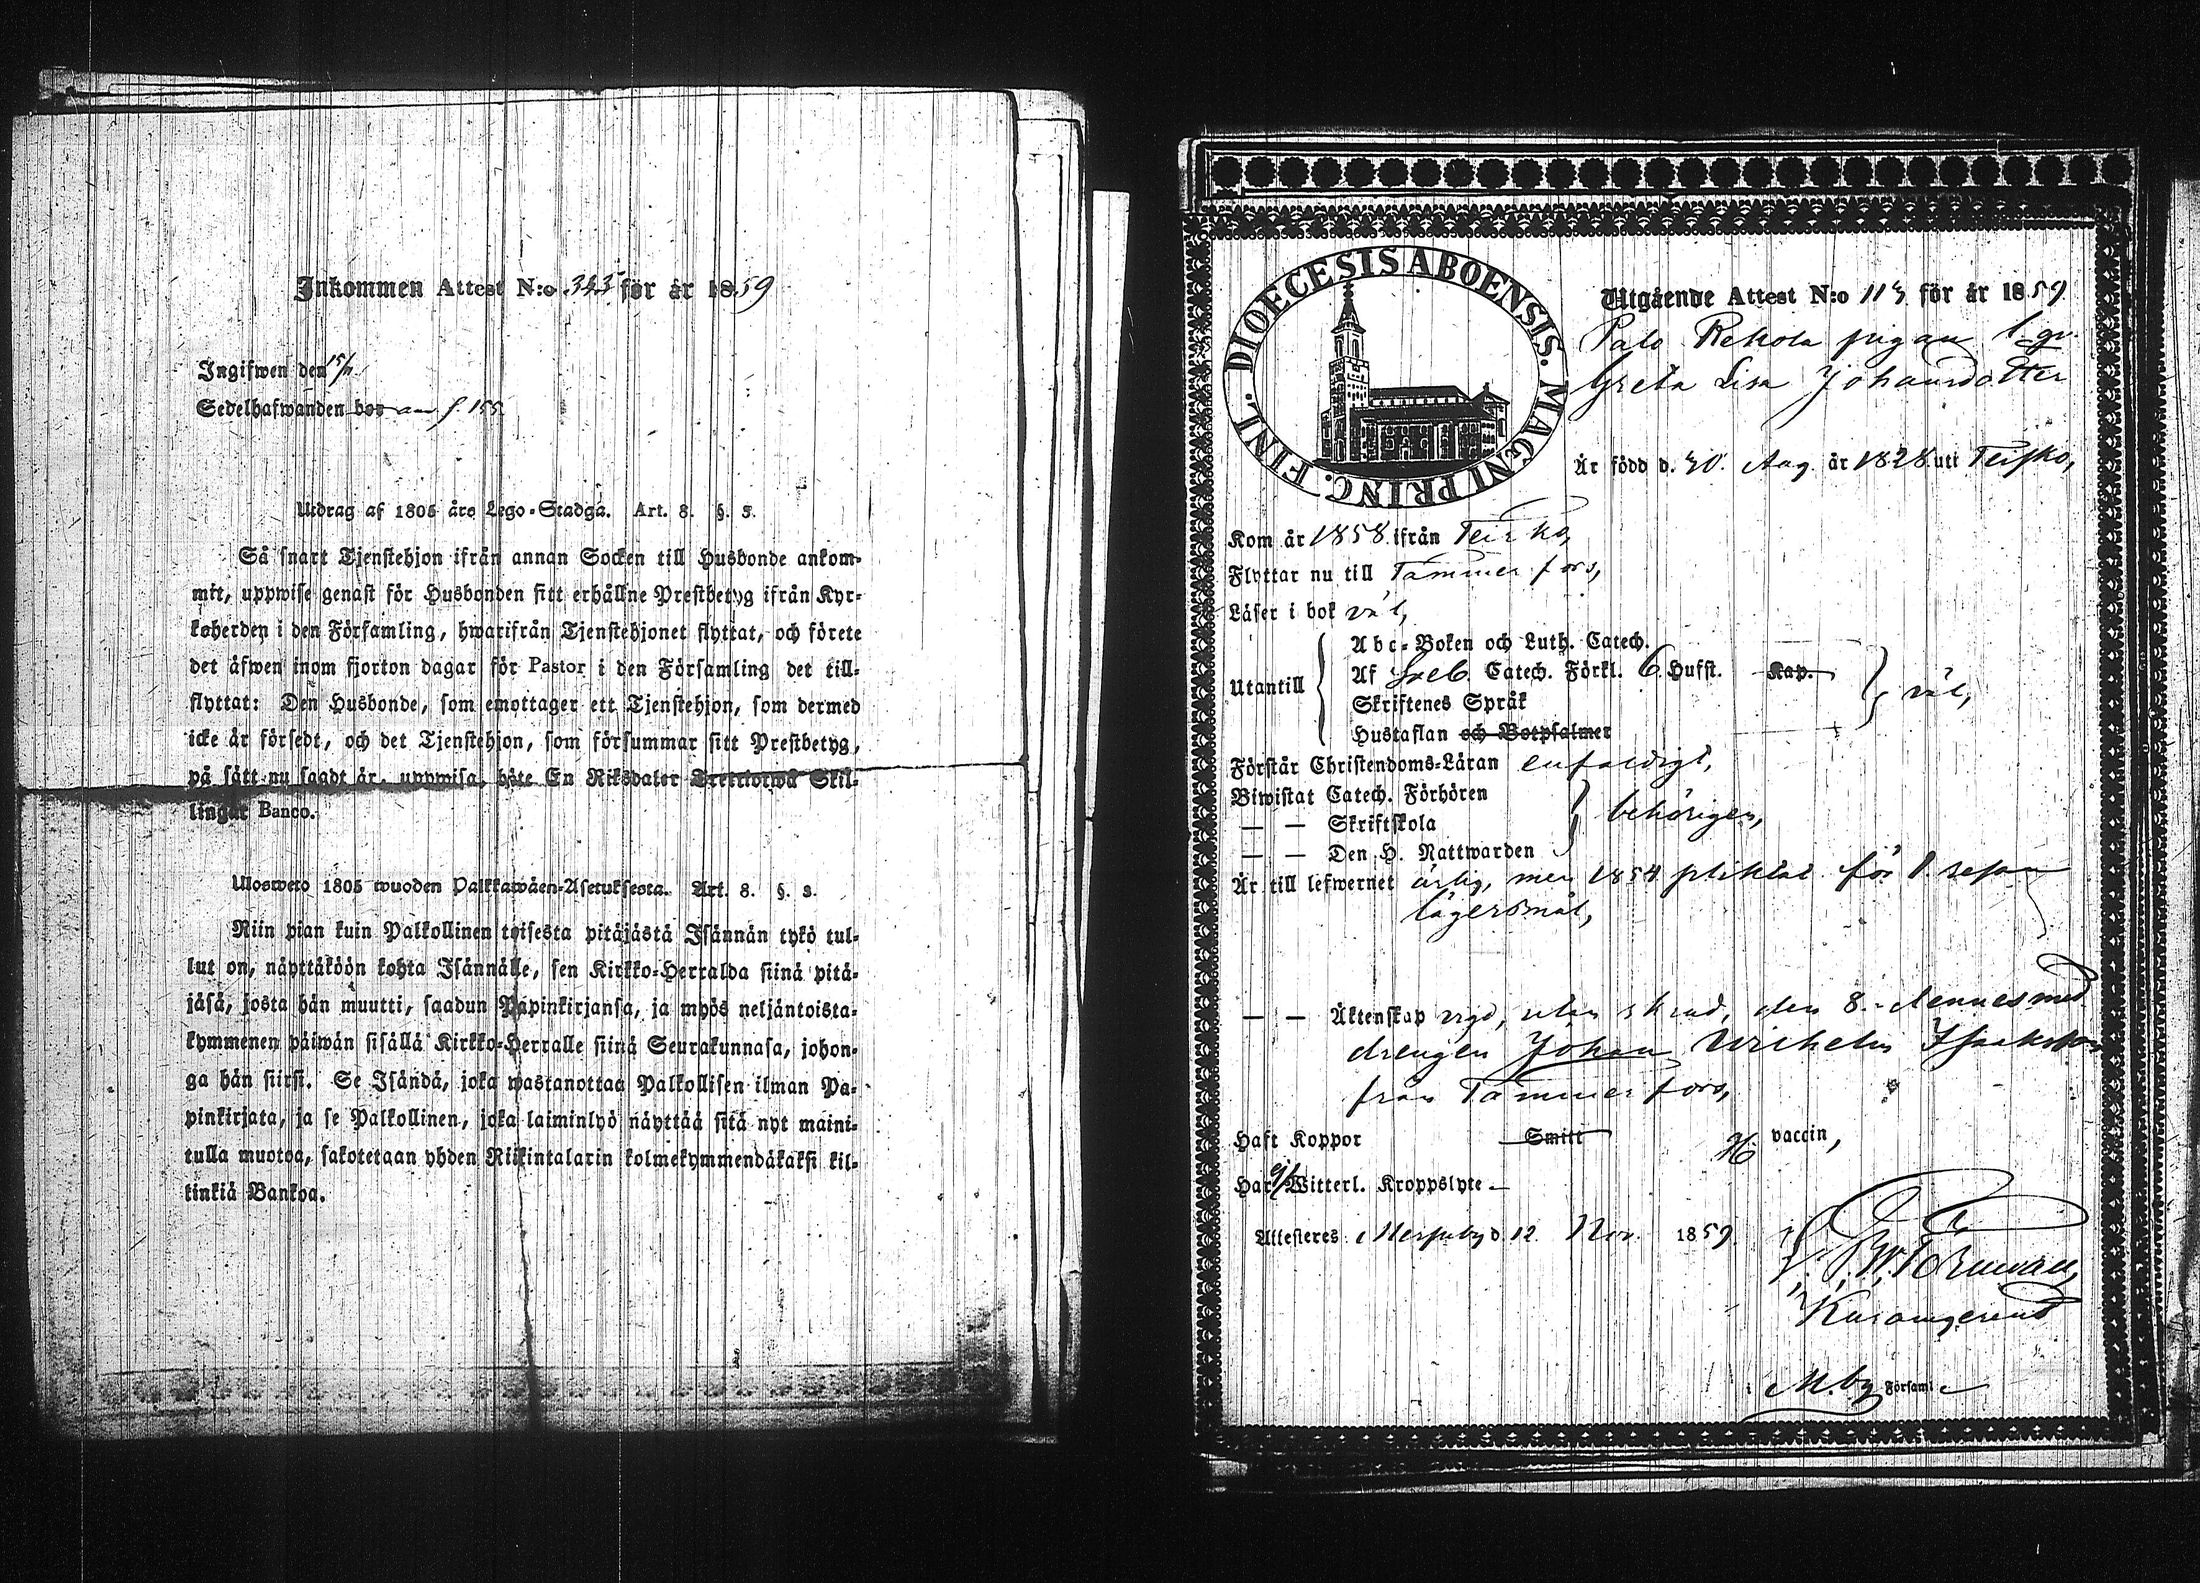 Inkommen Attest N:o 343 för år 1859
Ingifwen den 15/11
Sedelhafwanden bor f. 155.
Utdrag af 1805 års Lego-Stadga. Art. 8. §. 3.
Så snart Tjenstehjon ifrån annan Socken till Husbonde ankom-
mit, uppwise genast för Husbonden sitt erhållne Prestbetyg ifrån Kyr-
koherden i den Församling, hwarifrån Tjenstehjonet flyttat, och förete
det äfwen inom fjorton dagar för Pastor i den Församling det till-
flyttat: Den Husbonde, som emottager ett Tjenstehjon, som dermed
icke är försedt, och det Tjenstehjon, som försummar sitt Prestbetyg,
på sätt nu sagdt är, uppwisa, böte En Riksdaler Trettiotwå Skil-
lingar Banco.
Ulosweto 1805 wuoden Palkkawäen-Asetuksesta. Art. 8. §. 3.
Niin pian kuin Palkollinen toisesta pitäjästä Isännän tykö tul-
lut on, näyttäköön kohta Isännälle, sen Kirkko-Herralda siinä pitä-
jäsä, josta hän muutti, saadun Papinkirjansa, ja myös neljäntoista-
kymmenen päiwän sisällä Kirkko-Herralle siinä Seurakunnasa, johon-
ga hän siirsi. Se Isändä, joka wastanottaa Palkollisen ilman Pa-
pinkirjata, ja se Palkollinen, joka laiminlyö näyttää sitä nyt maini-
tulla muotoa, sakotetaan yhden Riikintalarin kolmekymmendäkaksi kil-
linkiä Bankoa.
DIOECESIS ABOENSIS. MAGNI PRINC. FINL.
Utgående Attest N:o 113 för år 1859
Palo Rekola pigan
Greta Lisa Johansdotter
Är född d. 30. Aug. år 1828 uti Teisko,
Kom år 1858 ifrån Teisko,
Flyttar nu till Tammerfors,
Läser i bok väl,
Utantill
Abc-Boken och Luth. Catech.
Af Sveb. Catech. Förkl. 6 Hufst. Kap.
Skriftenes Språk
Hustaflan och Botpsalmer
väl,
Förstår Christendoms-Läran enfaldigt,
Biwistat Catech. Förhören
— — Skriftskola
— — Den H. Nattwarden
behörigen,
Är till lefwernet ärlig, men 1854 pliktat för 1 resan
lägersmål,
— — Äktenskap den 8. dennes med
drengen Johan Wilhelm Isaksson
från Tammerfors,
Haft Koppor Smitt H. vaccin,
Har ej Witterl. Kroppslyte —
Attesteres Messuby d. 12 Nov. 1859
M.by Församl.